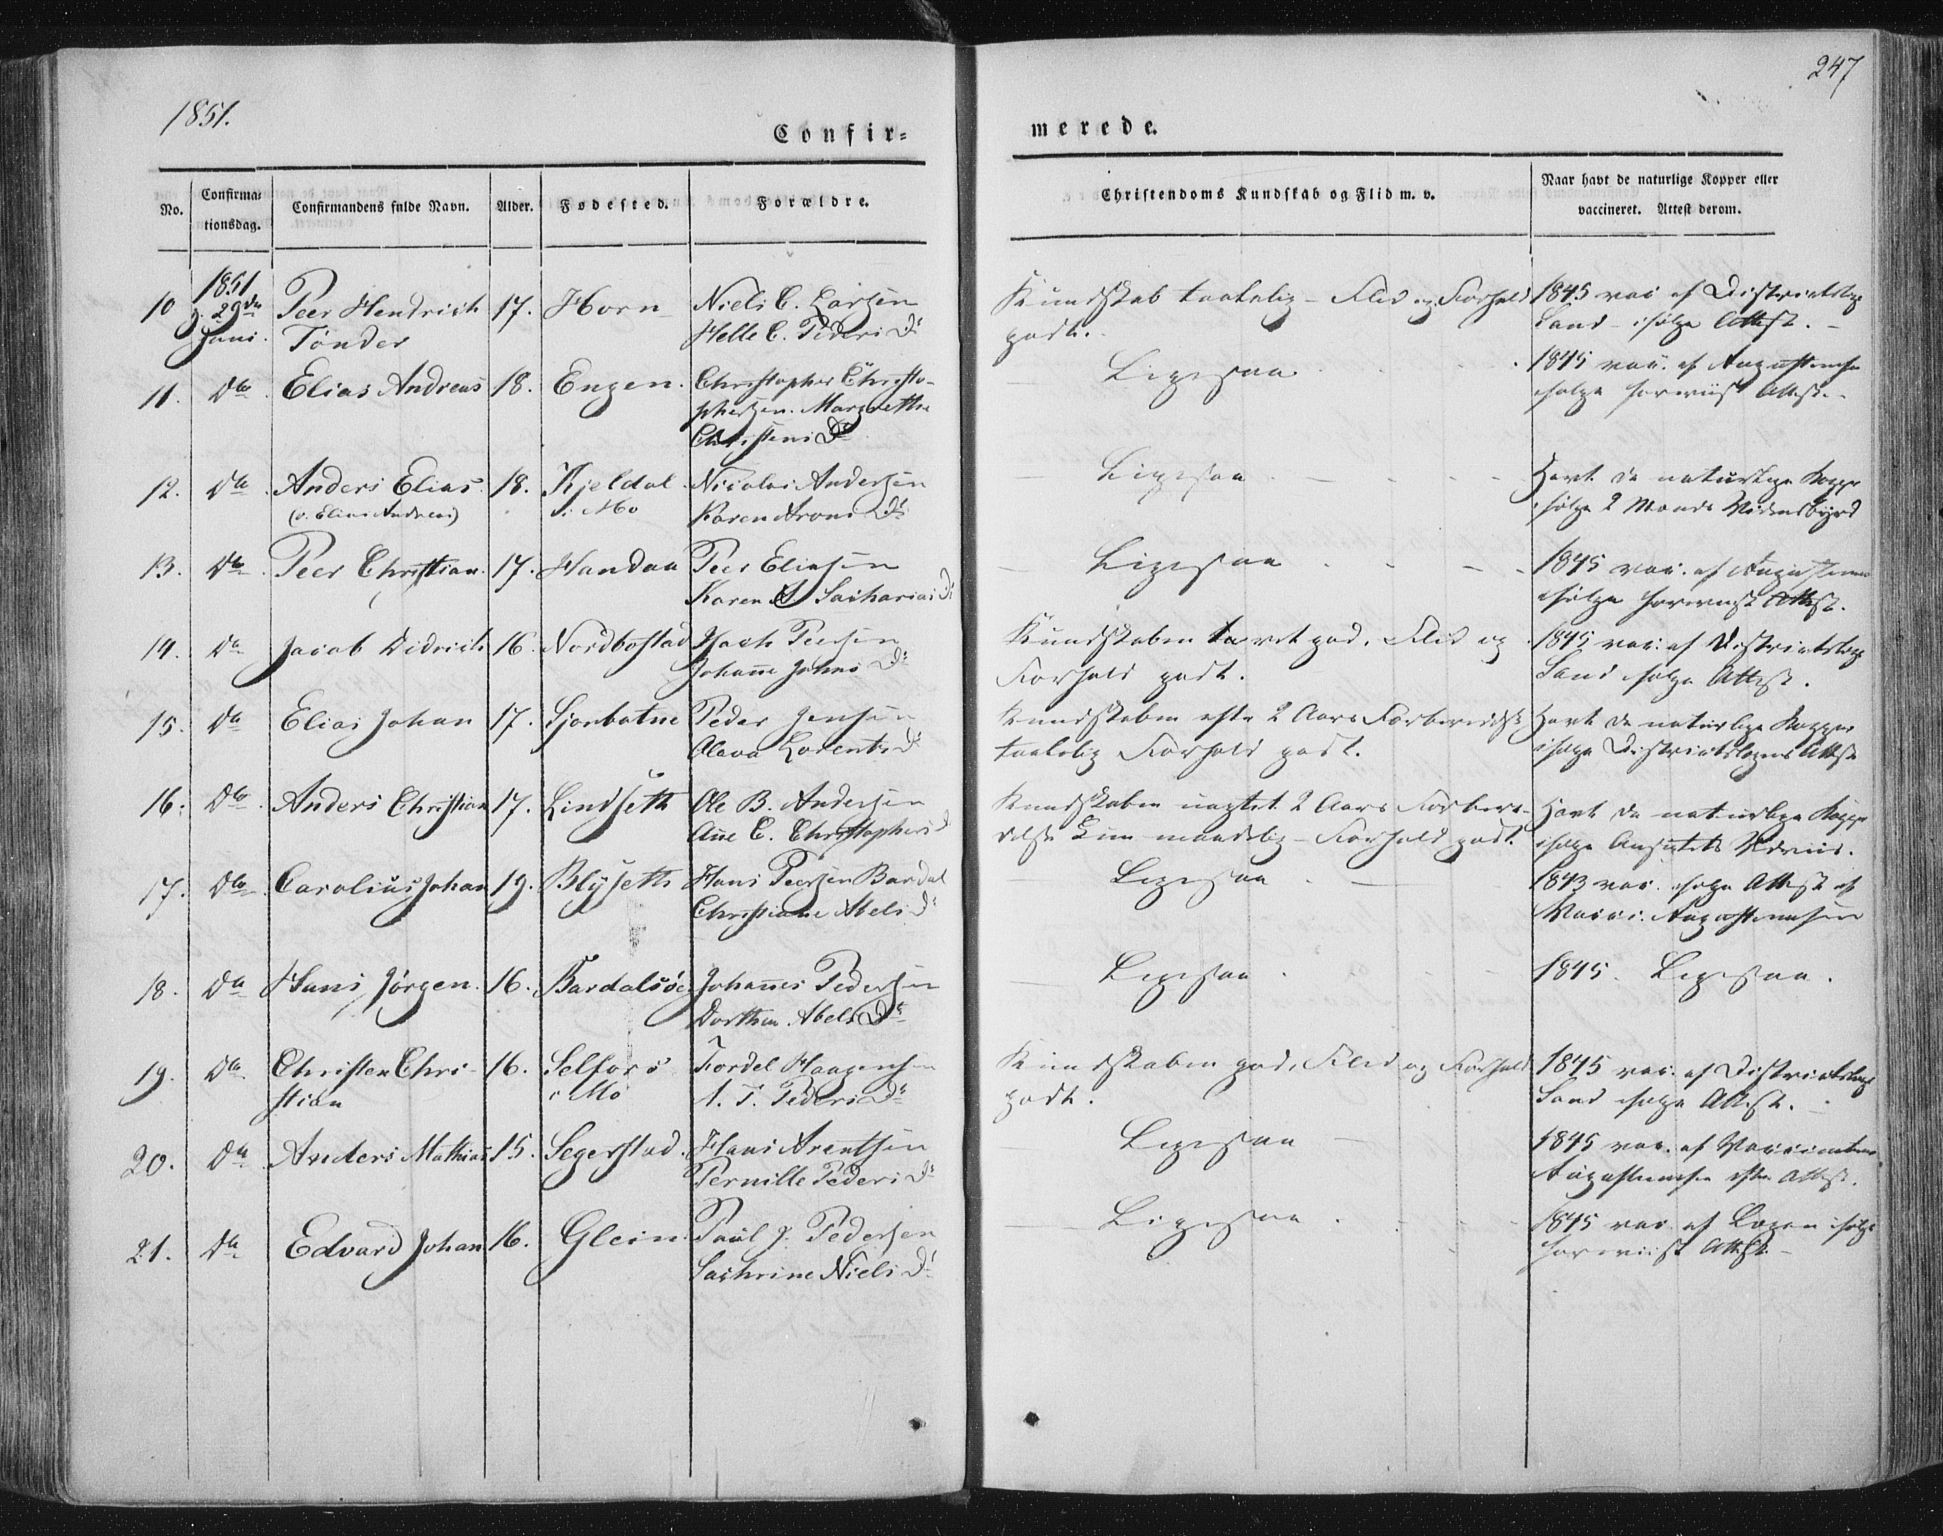 1851.
247
Confir=
merede.
No.
Confirma=
tionsdag.
Confirmandens fulde Navn.
Alder.
Fødested.
Forældre.
Christendoms Kundskab og Flid m. v.
Naar havt de naturlige Kopper eller
vaccineret. Attest derom.
10 1851 29de Juni. Peer Hendrich 17. Horn Niels C. Larsen Kundskab taalelig - Flid og Forhold 1845 vac. af Districtslæge
Tønder Helle C. Peders D. godt. Land - ifølge Attest. -
11. Do Elias Andreas 18. Engen. Christopher Christo- Ligesaa 1845 vac. af Augustinusen
phersen. Margrethe ifølge foreviist Attest.
Christens D.
12. Do Anders Elias 18. Kjeldal Nicolai Andersen Ligesaa Havt de naturlige Kopper
(o. Elias Andreas) i Mo Karen Arons D. ifølge 2 Mænds Vidnesbyrd
13. Do Peer Christian 17. Handaa Peer Eliasen Ligesaa 1845 vac. af Augustinusen
Karen Sacharias D. ifølge foreviist Attest.
14. Do Jacob Didrich 16. Nordbostad Peersen Kundskaben god, Flid og 1845 vac. af Districtslæge
Johanne Johns D. Forhold godt. Land ifølge Attest.
15. Do Elias Johan 17. Sjonbotne Peder Jensen Kundskaben efter 2 Aars Forberedelse Havt de naturlige Kopper
Olava Lorents D. taalelig Forhold godt. ifølge Districtslægens Attest
16. Do Anders Christian 17. Lindseth Ole B. Andersen Kundskaben uagtet 2 Aars Forbere- Havt de naturlige Kopper
Ane C. Christophers D. delse kun maadelig - Forhold godt. ifølge Ansigtets Udviis.
17. Do Carolius Johan 19. Blyseth Hans Peersen Bardal Ligesaa 1843 vac. ifølge Attest af
Christiane Abels D. Vacci. Augustinusen
18. Do Hans Jørgen 16. Bardalsø Johannes Pedersen Ligesaa 1845. Ligesaa.
Dorthea Abels D.
19. Do Christen Chri- 16. Selfors Tordel Haagensen Kundskaben god, Flid og Forhold 1845 vac. af Districtslæge
stian i Mo A. T. Peders D. godt. Land ifølge Attest.
20. Do Anders Mathias 15. Segerstad. Hans Arentsen Ligesaa 1845 vac. af Vaccinateur
Pernille Peders D. Augustinusen efter Attest.
21. Do Edvard Johan 16. Glein Paul J. Pedersen Ligesaa 1845 vac. af Lægen ifølge
Cathrine Niels D. foreviist Attest. -